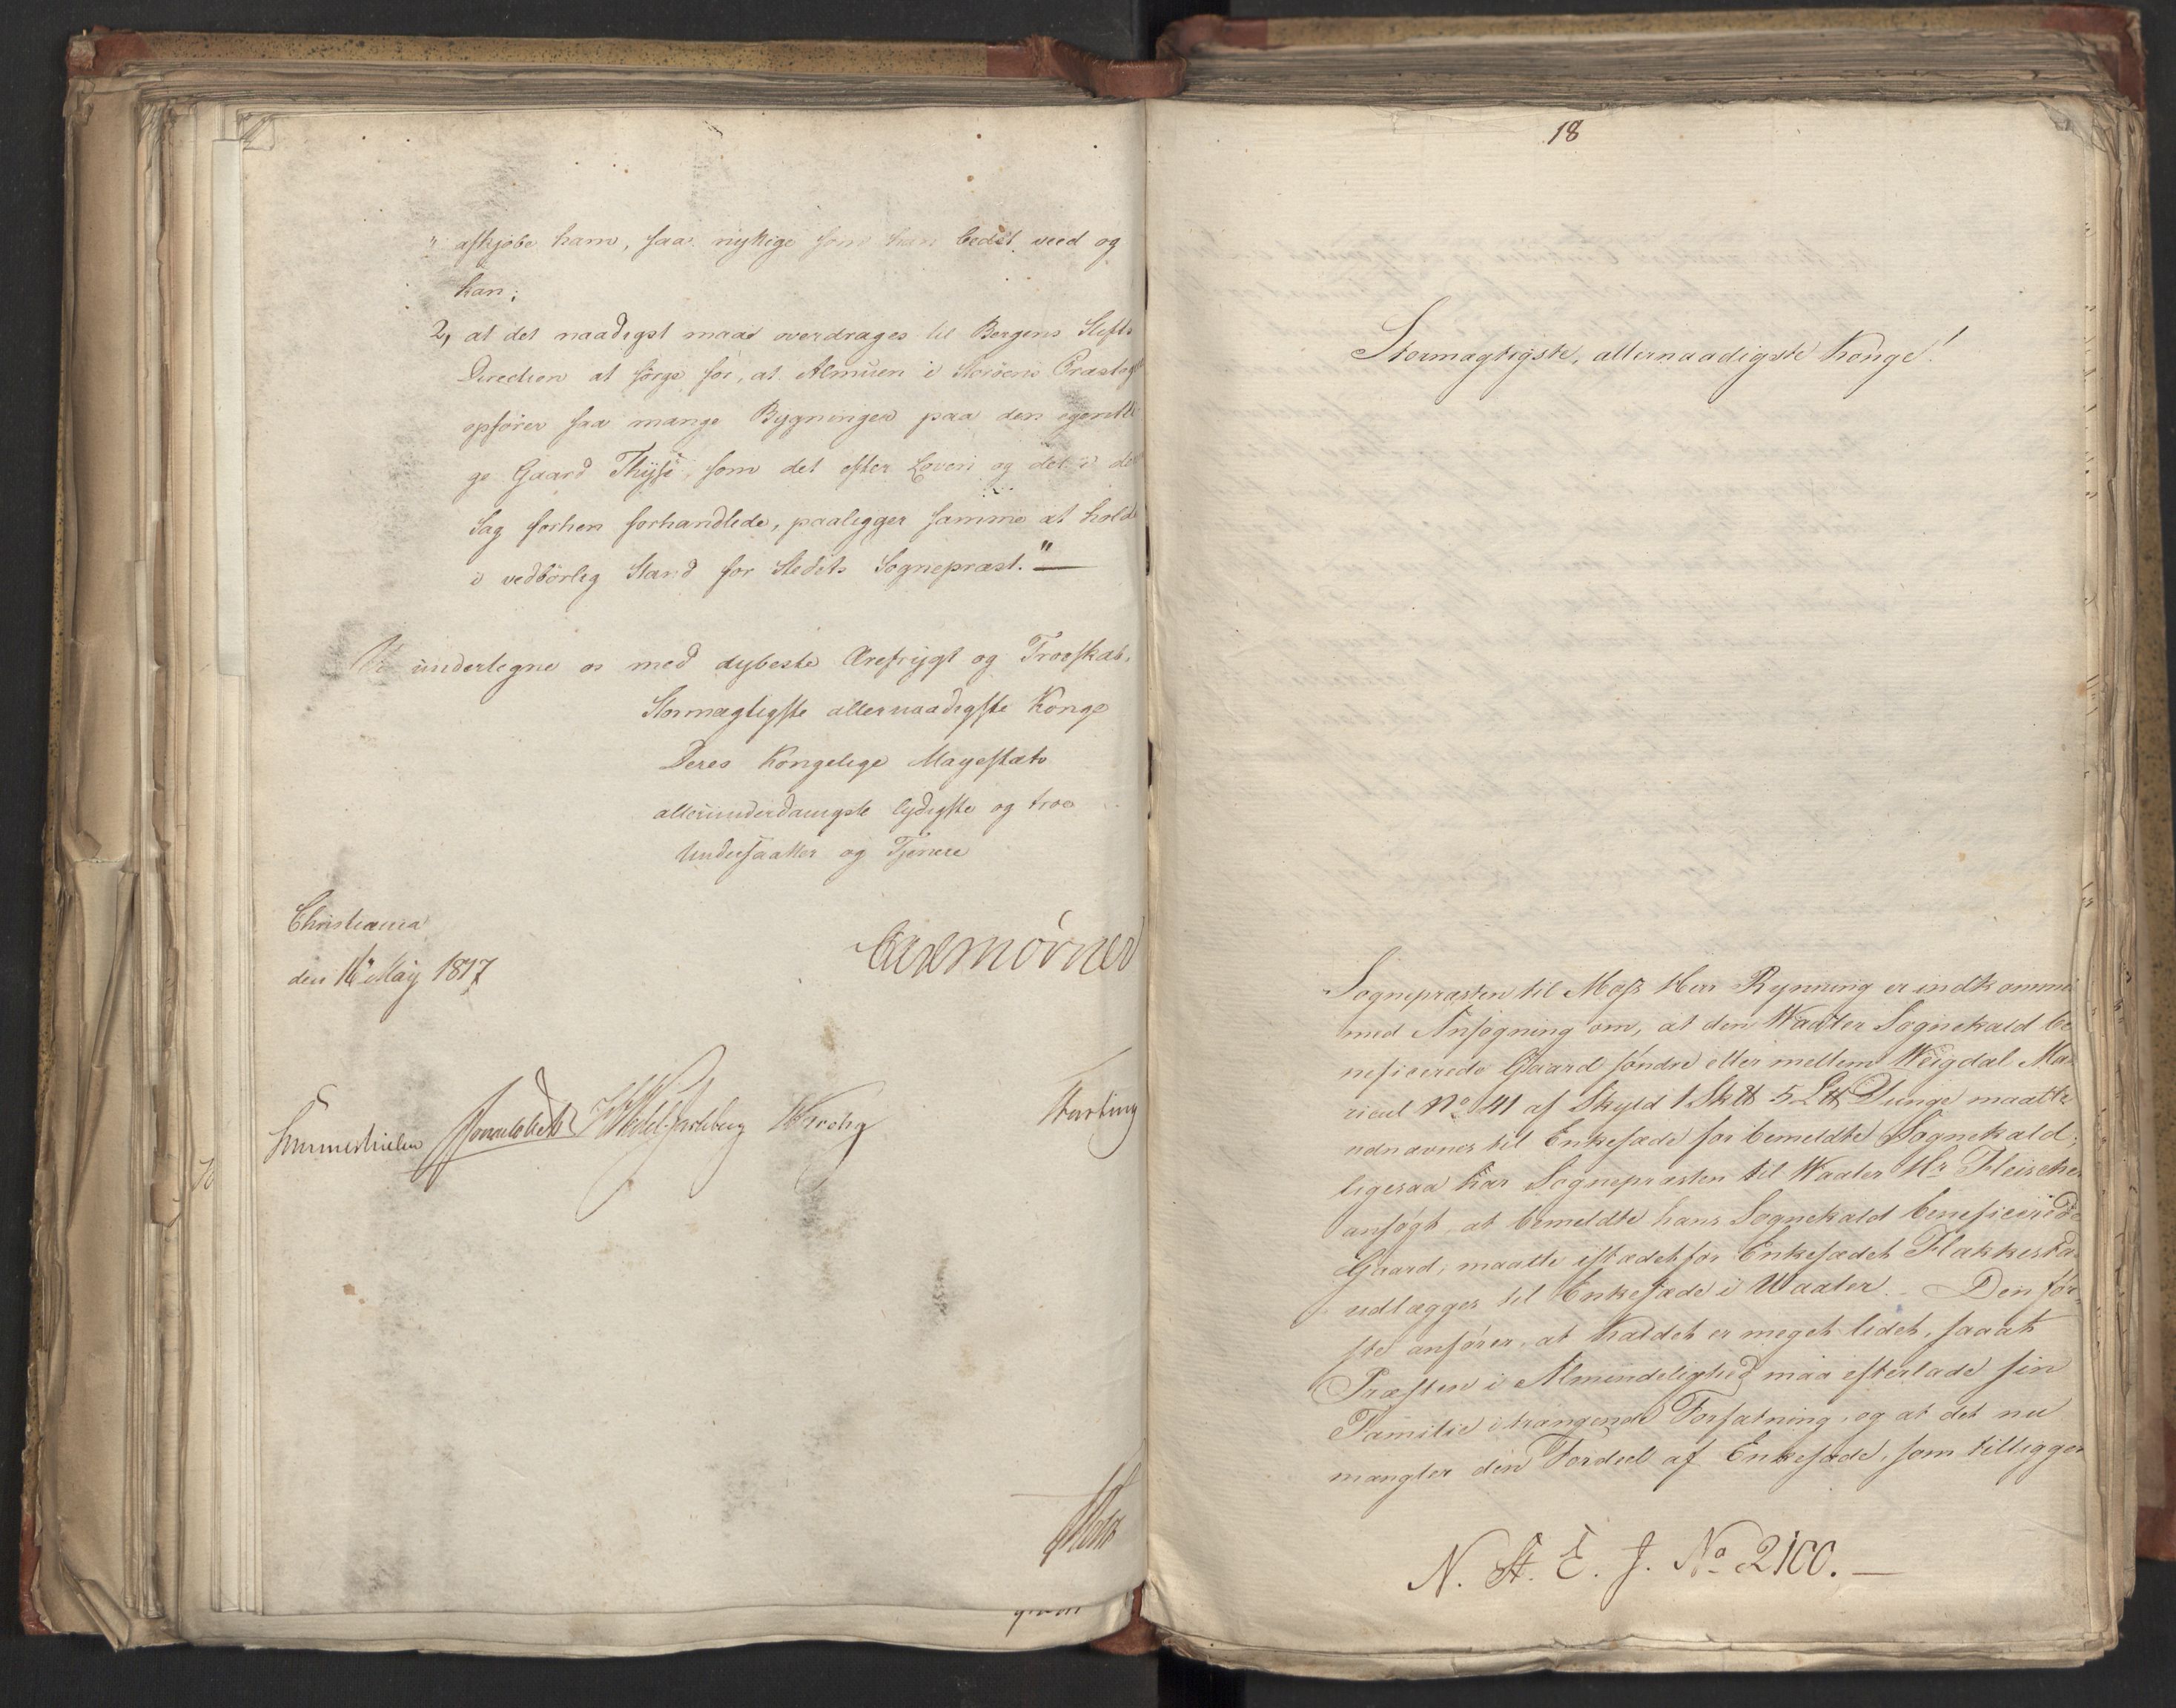 " afkjøbe ham, saa nyttige som han bedst veed og
kan;
2, at det naadigst maae overdrages til Bergens Stifts
Direction at sørge for, at Almuen i Præste
opfører saa mange Bygninger paa den egentli
ge Gaard som det efter Loven og det i
Sag forhen forhandlede, paaligger samme at holde
i vedbørlig Stand for Stedets Sognepræst."—
Vi undertegne os med dybeste Ærefrygt og Troeskab,
Stormægtigste allernaadigste Konge
Deres Kongelige Mayestæts
allerunderdanigste lydigste og troe
Undersaatter og Tjenere
Christiania
den 16 May 1817
Carl Mörner
Sommerhielm Wedel-Jarlsberg Krohg
18
Stormægtigste, allernaadigste Konge!
Sognepræsten til Moss Herr Rynning er indkommen
med Ansøgning om, at den Waaler Sognekald be
neficerede Gaard søndre eller mellem Weigdal Ma-
tricul No 41 af Skyld 1 Sk℔ 5 L℔ Tunge maatte
udnævnes til Enkesæde for bemeldte Sognekald;
ligesaa har Sognepræsten til Waaler Hr Fleischer
ansøgt at bemeldte hans Sognekald beneficerede
Gaard, maatte istædetfor Enkesædet
udlægges til Enkesæde i Waaler. – Den før-
ste anfører, at Kaldet er meget lidet, saaat
Præsten i Almindelighed maa efterlade sin
Familie i trængende Forfatning, og at det nu
mangler den Fordeel af Enkesæde, som tillægger
N. St. E. J. No 2100.—